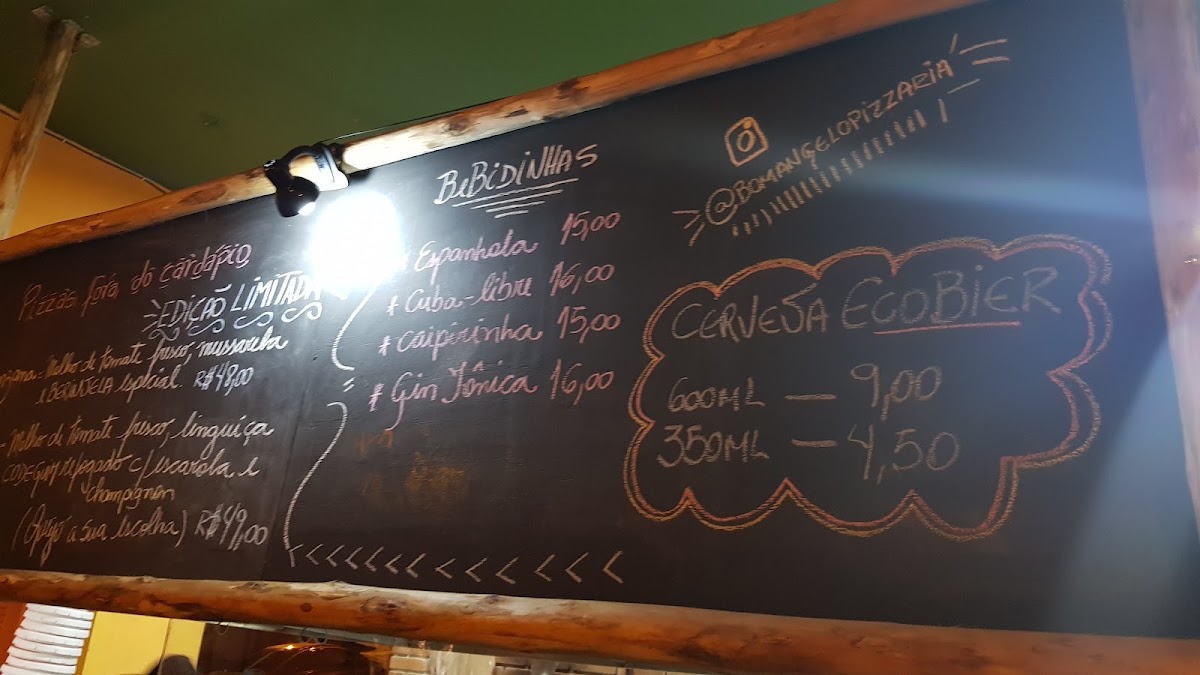 Pizzas fora do cardápio
EDIÇÃO LIMITADA
Molho de tomate fresco, mussarela
e BERINGELA especial R$48,00
- Molho de tomate fresco, linguiça
refogado c/escarola e
champignon
a sua escolha) R$49,00
BeBiDiNHAS
Espanhola 15,00
# Cuba-libre 16,00
# caipirinha 15,00
# Gin Tônica 16,00
@BOMANGELOPIZZARIA
CERVEJA ECOBIER
600ML — 9,00
350ML — 4,50